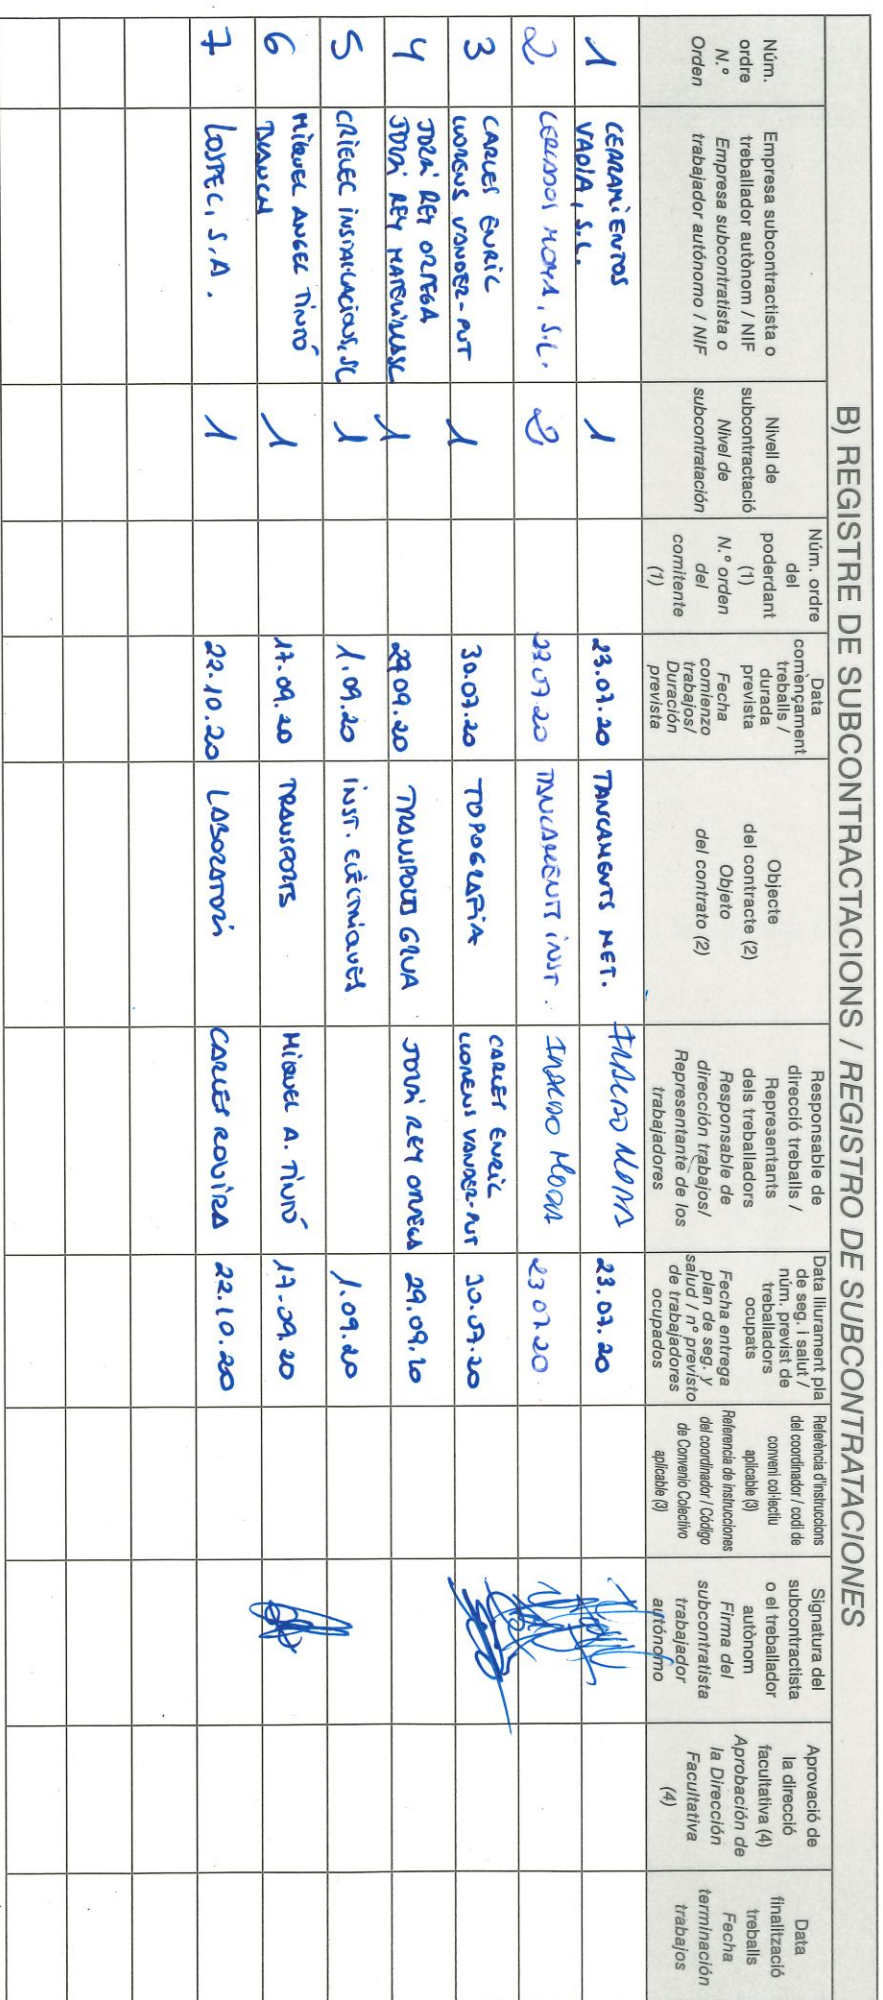 B) REGISTRE DE SUBCONTRACTACIONS / REGISTRO DE SUBCONTRATACIONES
Núm.
ordre
N.º
Orden
Empresa subcontractista o
treballador autònom / NIF
Empresa subcontratista o
trabajador autónomo / NIF
Nivell de
subcontractació
Nivel de
subcontratación
Núm. ordre
del
poderdant
(1)
N.º orden
del
comitente
(1)
Data
començament
treballs /
durada
prevista
Fecha
comienzo
trabajos/
Duración
prevista
Objecte
del contracte (2)
Objeto
del contrato (2)
Responsable de
direcció treballs /
Representants
dels treballadors
Responsable de
dirección trabajos/
Representante de los
trabajadores
Data lliurament pla
de seg. i salut /
núm. previst de
treballadors
ocupats
Fecha entrega
plan de seg. y
salud / nº previsto
de trabajadores
ocupados
Referència d'instruccions
del coordinador / codi de
conveni col·lectiu
aplicable (3)
Referencia de instrucciones
del coordinador / Código
de Convenio Colectivo
aplicable (3)
Signatura del
subcontractista
o el treballador
autònom
Firma del
subcontratista
trabajador
autónomo
Aprovació de
la direcció
facultativa (4)
Aprobación de
la Dirección
Facultativa
(4)
Data
finalització
treballs
Fecha
terminación
trabajos
1
CERRAMIENTOS
VADIA, S.L.
1
23.07.20
TANCAMENTS MET.
23.07.20
2
S.L.
2
23.07.20
TANCAMENTS INST.
23.07.20
3
CARLES ENRIC
LLORENS VANDER-PUT
1
30.07.20
TOPOGRAFIA
CARLES ENRIC
LLORENS VANDER-PUT
30.07.20
4
JORDI REY ORTEGA
JORDI REY
1
29.09.20
TRANSPORTS GRUA
JORDI REY ORTEGA
29.09.20
5
CRIELEC INSTAL·LACIONS, SC
1
1.09.20
INST. ELÈCTRIQUES
1.09.20
6
MIQUEL ANGEL TINTÓ
1
17.09.20
TRANSPORTS
MIQUEL A. TINTÓ
17.09.20
7
LOSTEC, S.A.
1
22.10.20
LABORATORI
CARLES ROVIRA
22.10.20